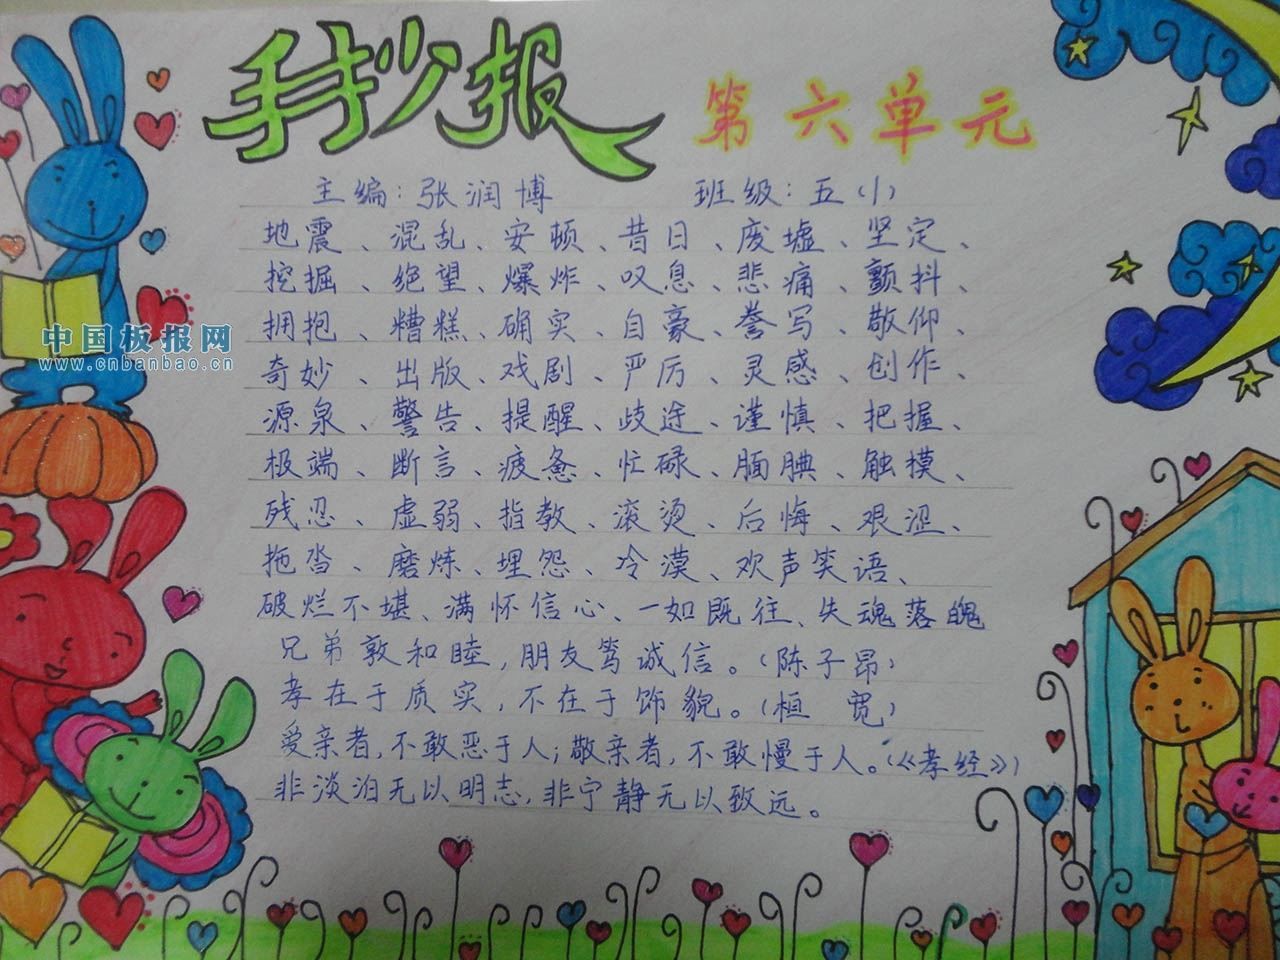 手抄报 第六单元
主编：张润博 班级：五（1）
地震、混乱、安顿、昔日、废墟、坚定、
挖掘、绝望、爆炸、叹息、悲痛、颤抖、
拥抱、糟糕、确实、自豪、誊写、敬仰、
奇妙、出版、戏剧、严厉、灵感、创作、
源泉、警告、提醒、歧途、谨慎、把握、
极端、断言、疲惫、忙碌、腼腆、触摸、
残忍、虚弱、指教、滚烫、后悔、艰涩、
拖沓、磨炼、埋怨、冷漠、欢声笑语、
破烂不堪、满怀信心、一如既往、失魂落魄
兄弟敦和睦，朋友笃诚信。（陈子昂）
孝在于质实，不在于饰貌。（桓宽）
爱亲者，不敢恶于人；敬亲者，不敢慢于人。（《孝经》）
非淡泊无以明志，非宁静无以致远。
中国板报网
www.cnbanbao.cn